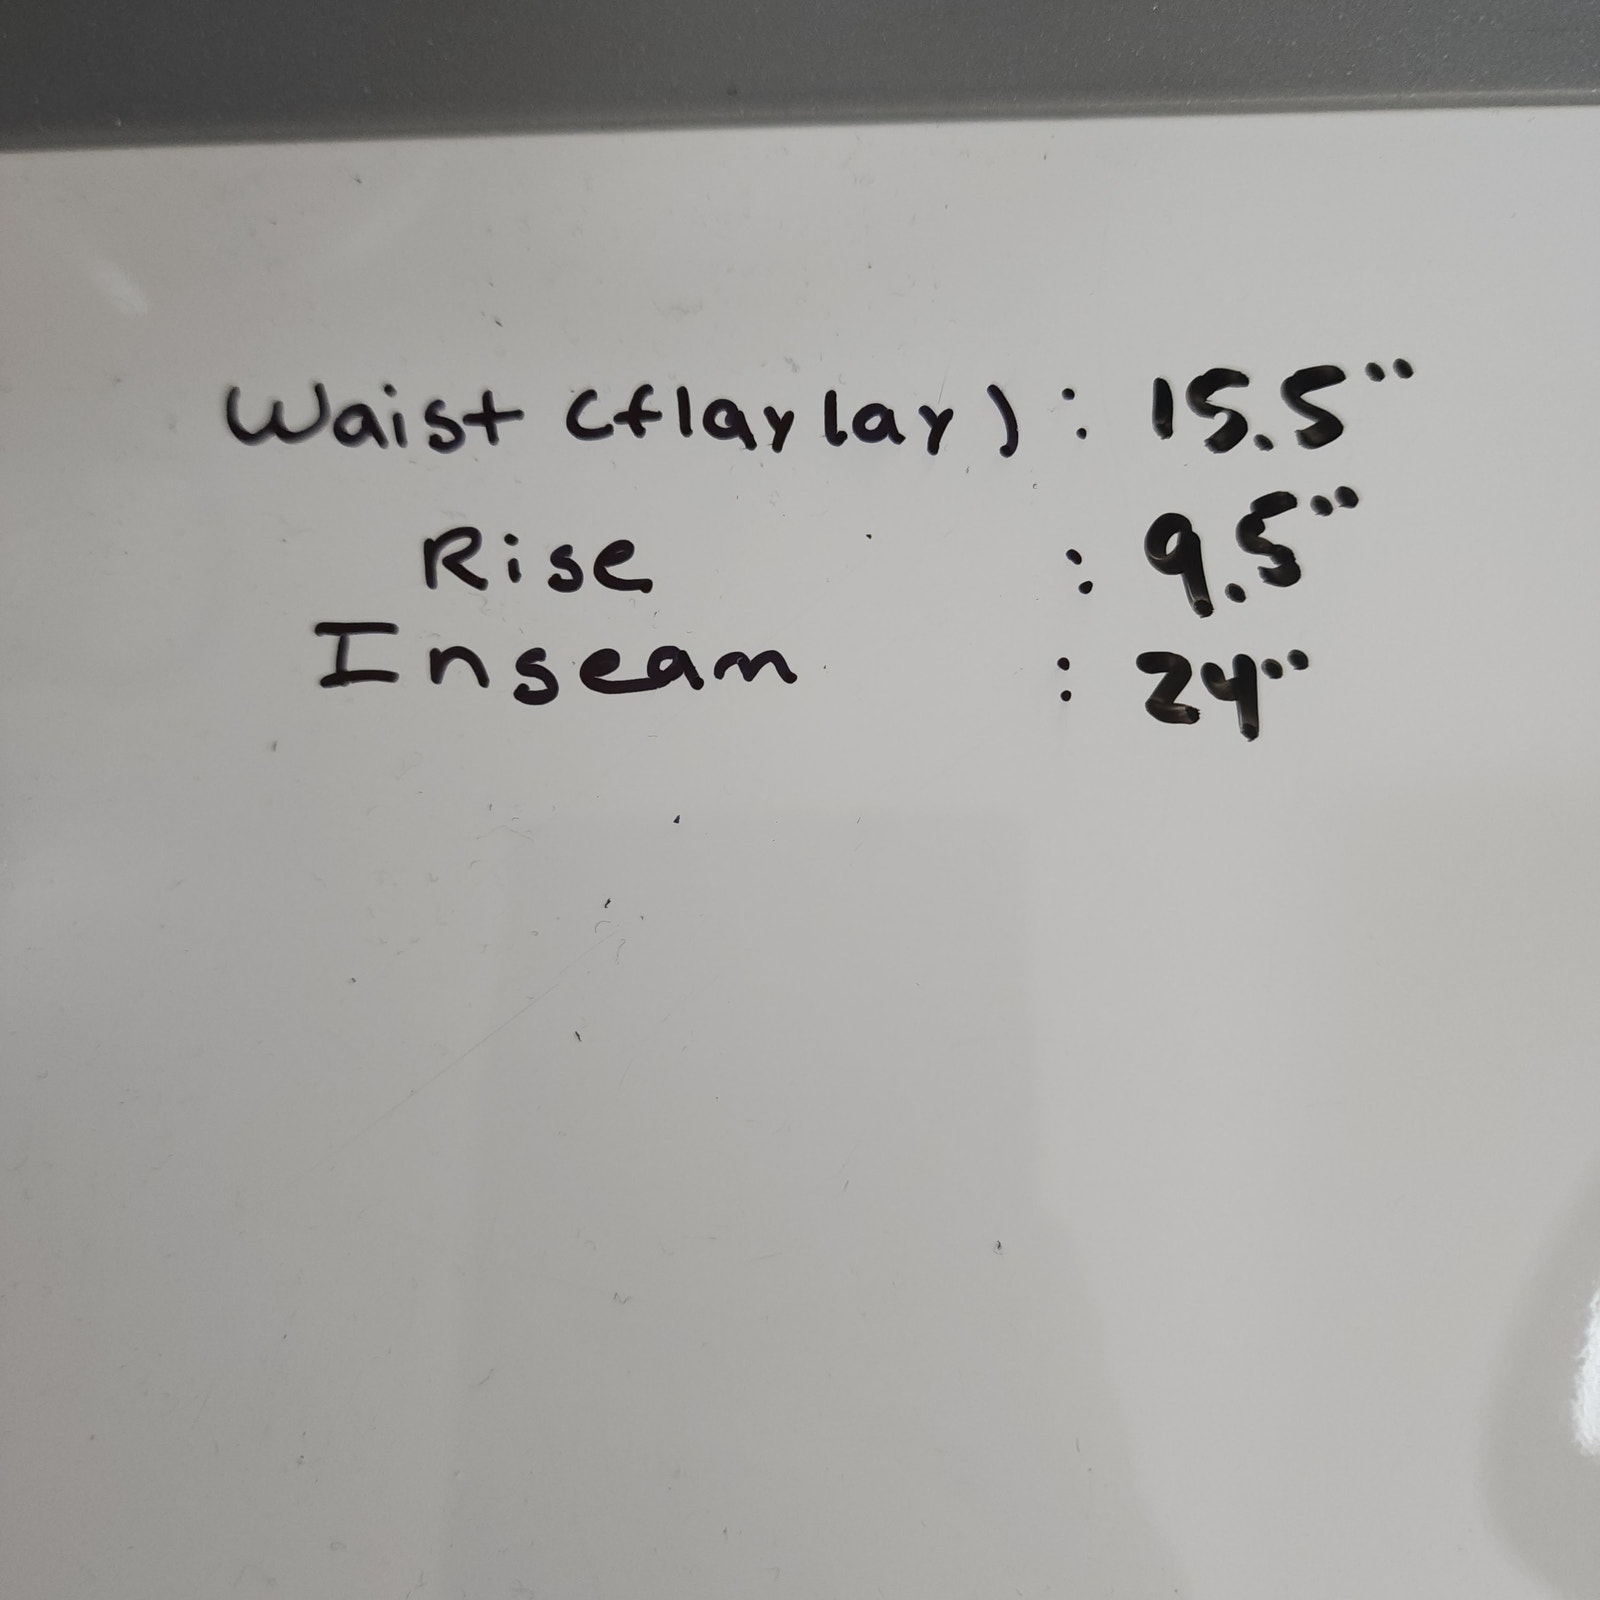 Waist (flaylay) : 15.5"
Rise : 9.5"
Inseam : 24"